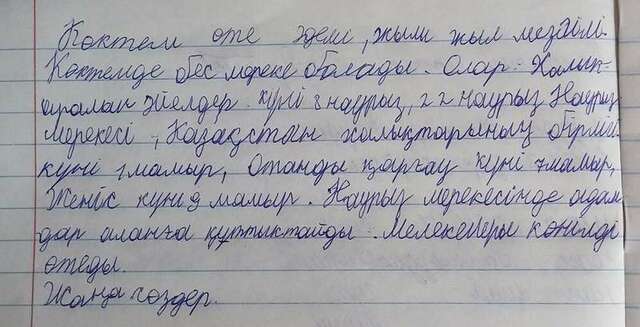 Көктем өте әдемі, жыли жыл мезгілі.
Көктемде бес мереке облады. Олар: Халық-
аралан әйелдер күні 8 наурыз, 22 наурыз Наурыз
мерекесі, Қазақстан халықтарының бірлігі
күні 1 мамыр, Отанды қорғау күні 7 мамыр,
Женіс күні 9 мамыр. Наурыз мерекесінде адам
дар аланға құттықтайды. Мелекелеры көңілді
өтеды.
Жаңа сөздер.